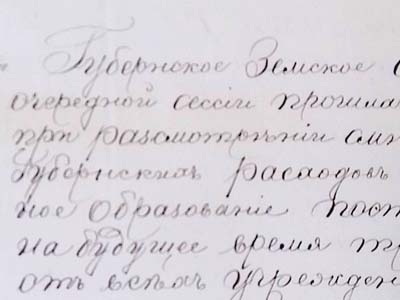 Губернское Земское С
очередной сессіи прошла
при разсмотрѣніи смѣ
Губернскихъ расходовъ
ное образованіе пост
на будущее время тр
отъ всѣхъ учрежден